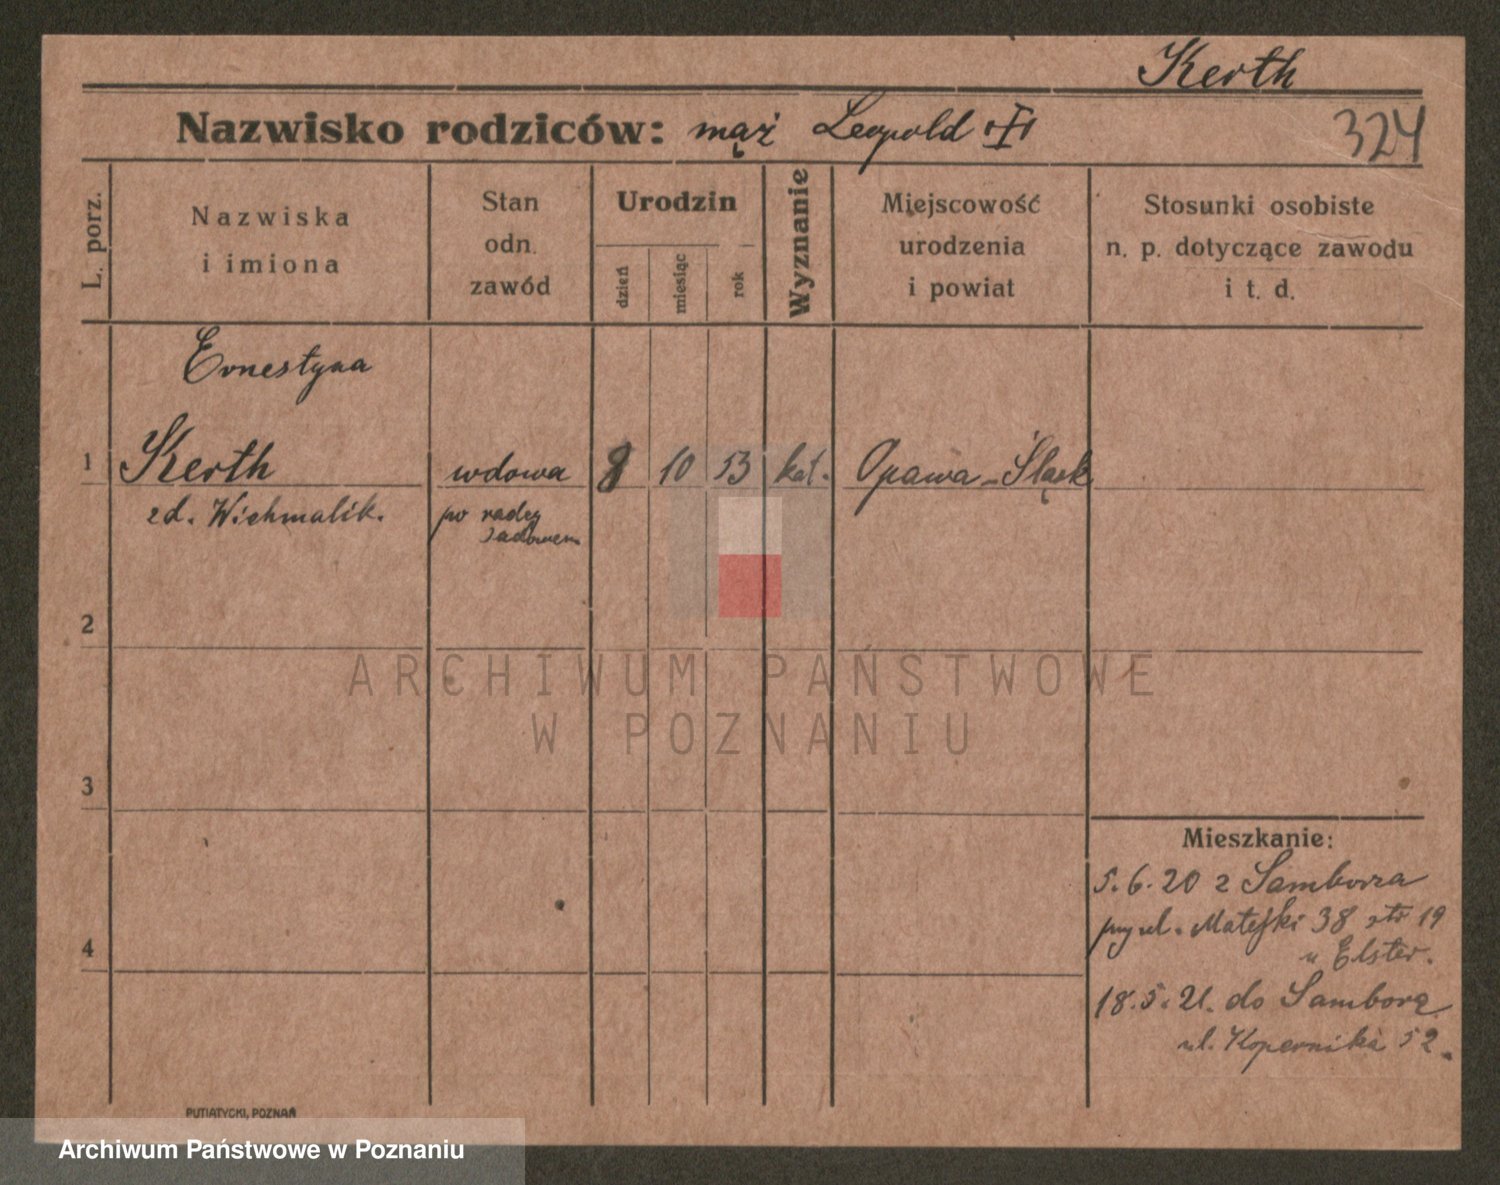 Kerth
Nazwisko rodziców: mąż Leopold
324
L. porz.
Nazwiska
i imiona
Stan
odn.
zawód
Urodzin
dzień
miesiąc
rok
Wyznanie
Miejscowość
urodzenia
i powiat
Stosunki osobiste
n. p. dotyczące zawodu
i t. d.
Ernestyna
1 Kerth wdowa 8 10 53 kat. Opawa - Śląsk
zd. Wichmalik. po radcy
sadowem
2
3
4
ARCHIWUM PAŃSTWOWE
W POZNANIU
Mieszkanie:
5.6.20 z Sambora
przy ul. Matejki 38 19
u Elster.
18.5.21. do Sambora
ul. Kopernika 52.
PUTIATYCKI, POZNAŃ
Archiwum Państwowe w Poznaniu